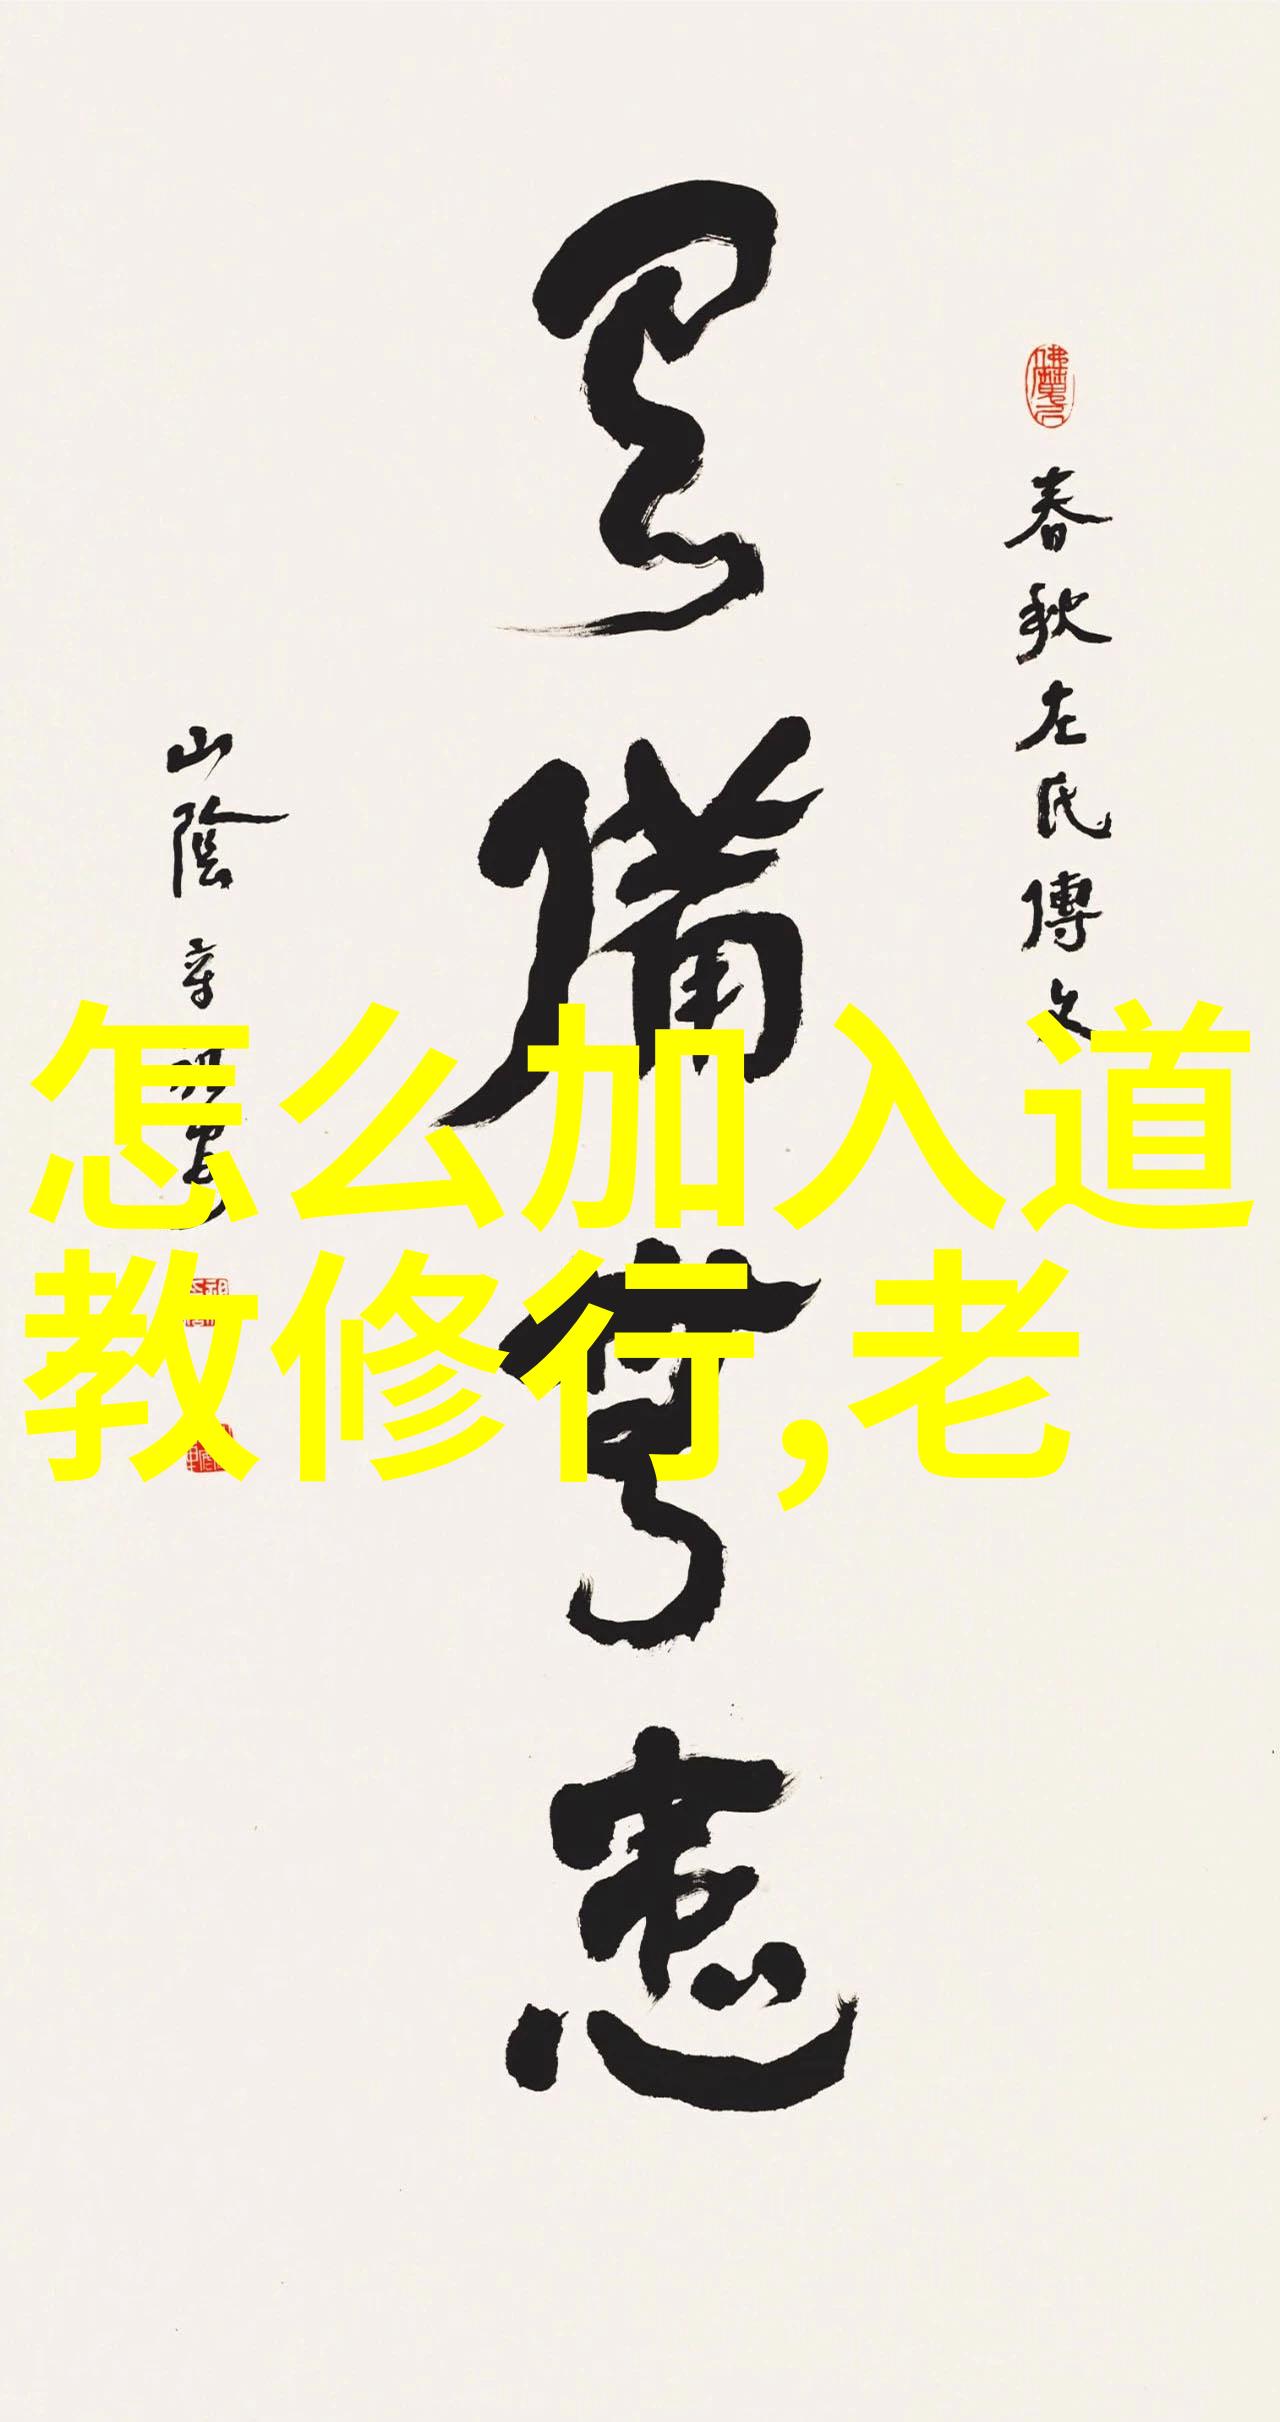 春秋左氏傳文
有備無患
山陰
怎么加入道
教修行,老